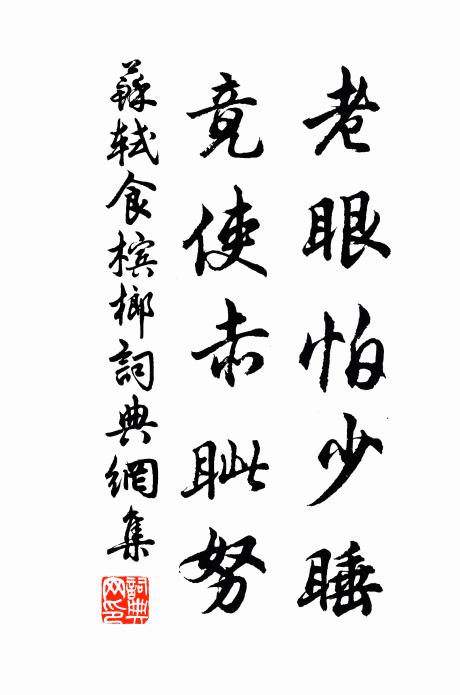 老眼怕少睡
竟使赤眦努
蘇軾食槟榔詞典網集
詞典
网印